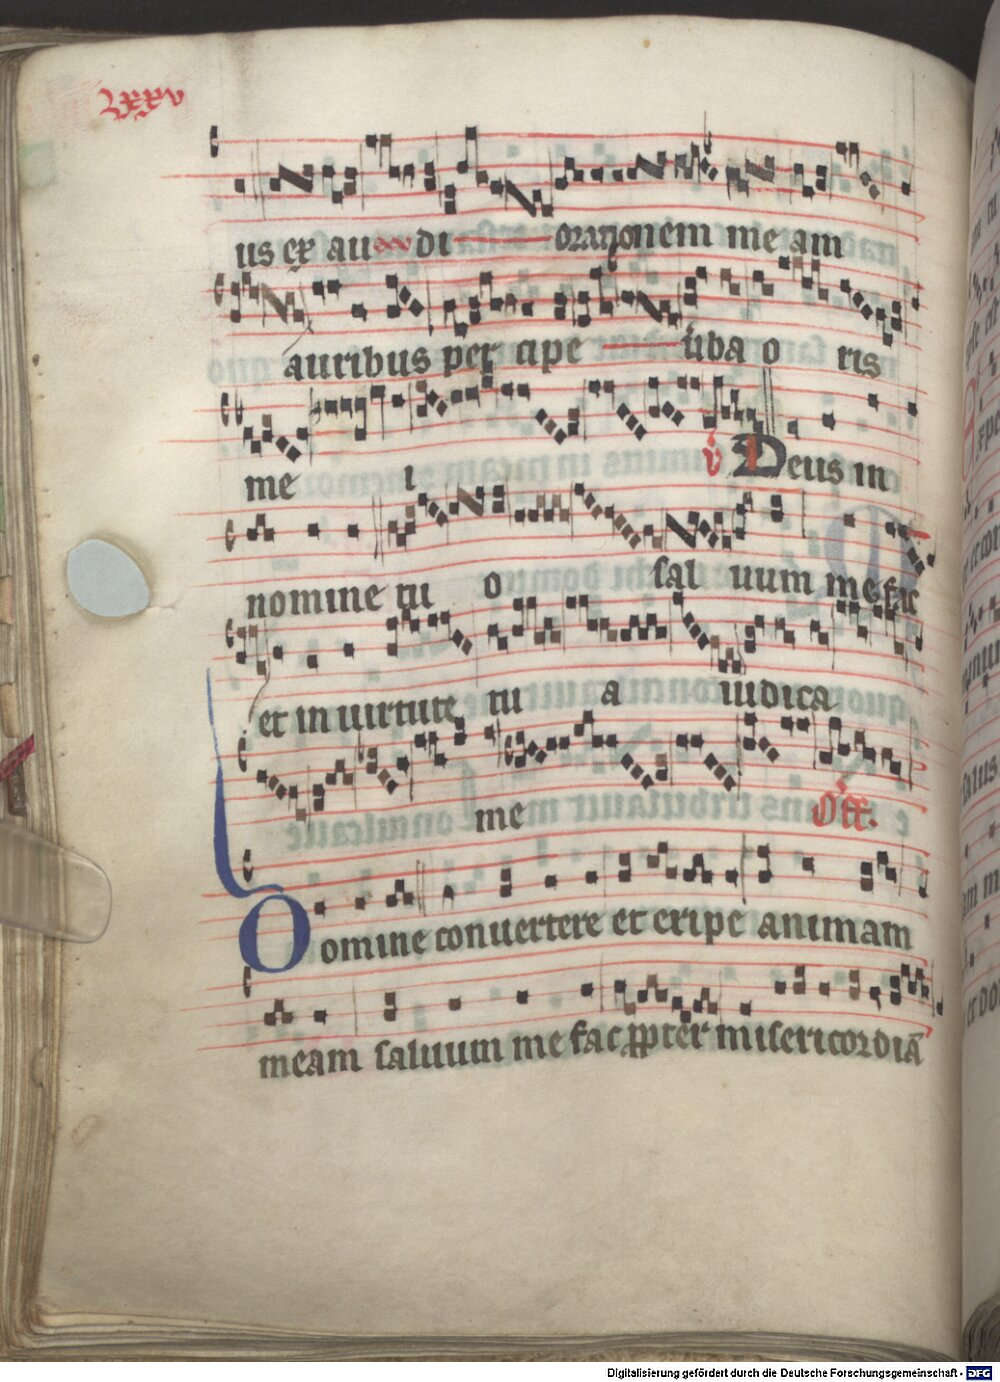 lxxxv
us ex au di orationem me am
auribus per cipe uba o ris
me i v Deus in
nomine tu o sal uum me fac
et in uirtute tu a iudica
me Off.
Domine conuertere et eripe animam
meam saluum me fac ppter misericordiā
Digitalisierung gefördert durch die Deutsche Forschungsgemeinschaft - DFG